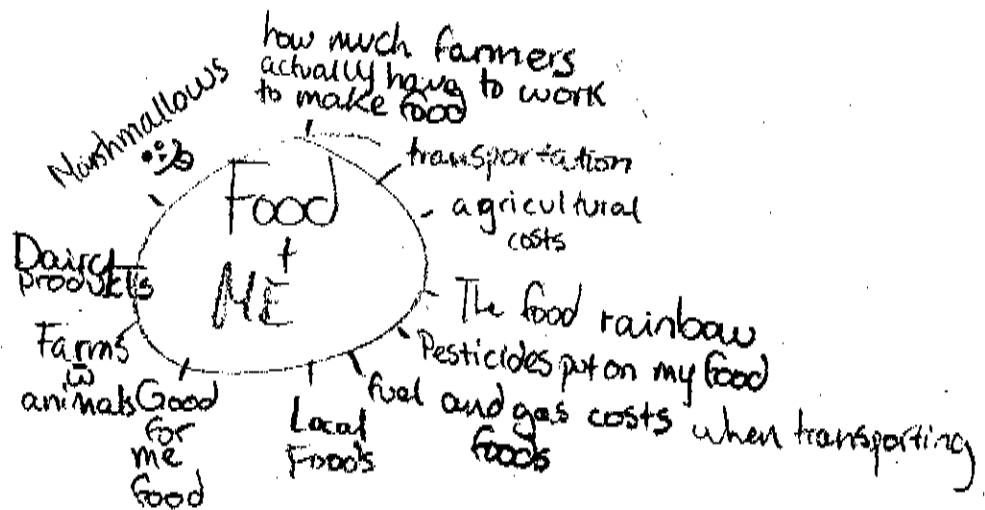 how much farmers
actually have to work
to make food
transportation
agricultural
costs
The food rainbow
Pesticides put on my food
fuel and gas costs when transporting
foods
Local
Food's
Good
for
me
food
Farms
w
animals
Dairy
products
Marshmallows
Food
+
ME